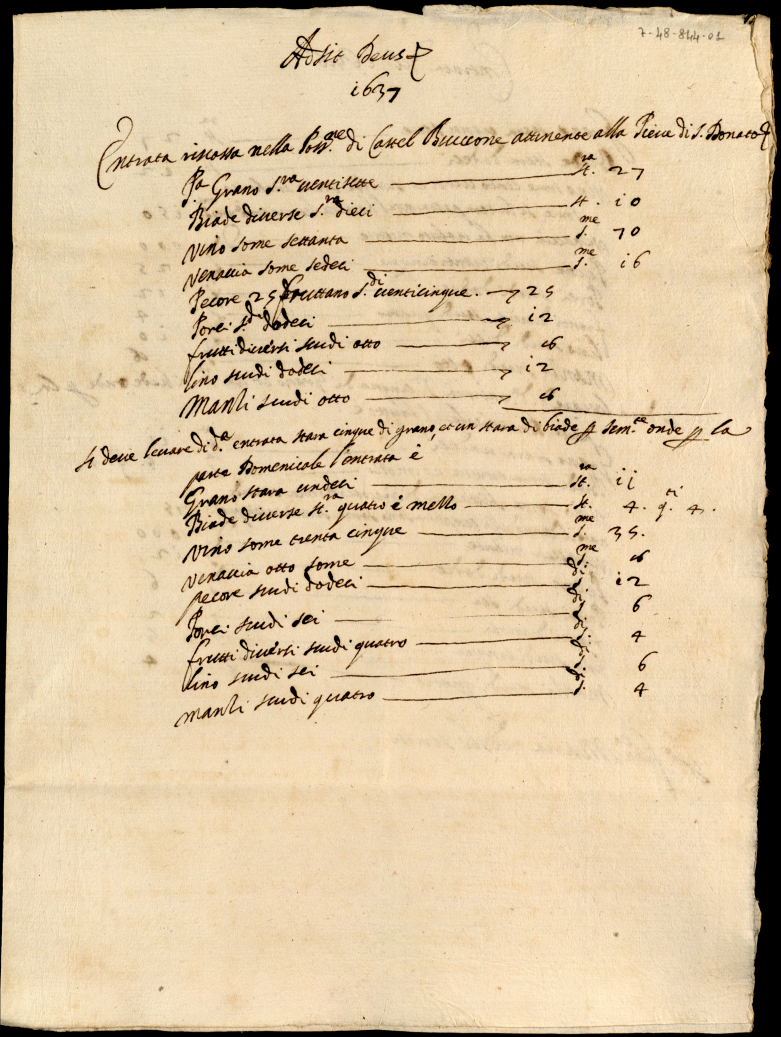 7-48-844-01
Adsit Deus
1637
Entrata riscossa nella Poss.ne di Castel Buccone attinente alla Pieve di S. Donato
P.a Grano s.ra ventisette — st.ra 27
Biade diverse s.ra dieci — st. io
vino some settanta — s.me 70
venaccia some sedeci — s.me i6
Pecore 25 fruttano s.di venticinque. — 25
Porci s.di dodeci — i2
frutti diversi scudi otto — 8
lino scudi dodeci — i2
Manzi scudi otto — 8
si deve levare di d.a entrata stara cinque di grano, et un stara di biade p sem.ce onde p la
parte Domenicale l'entrata è
Grano stara undeci — st.ra ii
Biade diverse st.ra quatro è mezzo — st. 4. q.ti 4.
vino some trenta cinque — s.me 35.
venaccia otto some — s.me 8
pecore scudi dodeci — di: i2
Porci scudi sei — di: 6
frutti diversi scudi quatro — di: 4
lino scudi sei — di: 6
manzi scudi quatro — di: 4